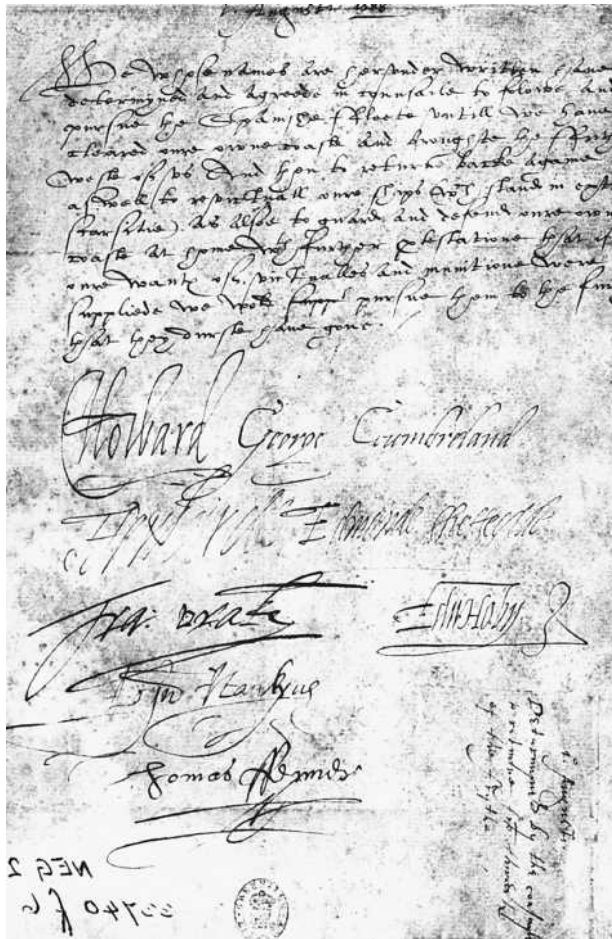 1 Auguste 1588
We whose names are hereunder written have
determyned and agreede in counsaile to folowe and
pursue the Spanishe ffleete untill we have
cleared oure owne coaste and broughte the ffrithe
weste of us And then to returne backe againe
as well to revictuall oure ships (wch stand in extreme
scarsitie) As alsoe to guard and defend oure owne
coaste at home wth further protestatione that if
oure wants of victualles and munitione were
suppliede we wold pursue them to the furthest
that they durste have gone.
Howard George Cumbreland
Edmond Sheffeylde
Fra: Drake Edw Hoby
Jhn Hawkyns
Thomas ffenner
1 Auguste
Determyned by the counsale
retorne
of the
NEG 2
33740 f 6